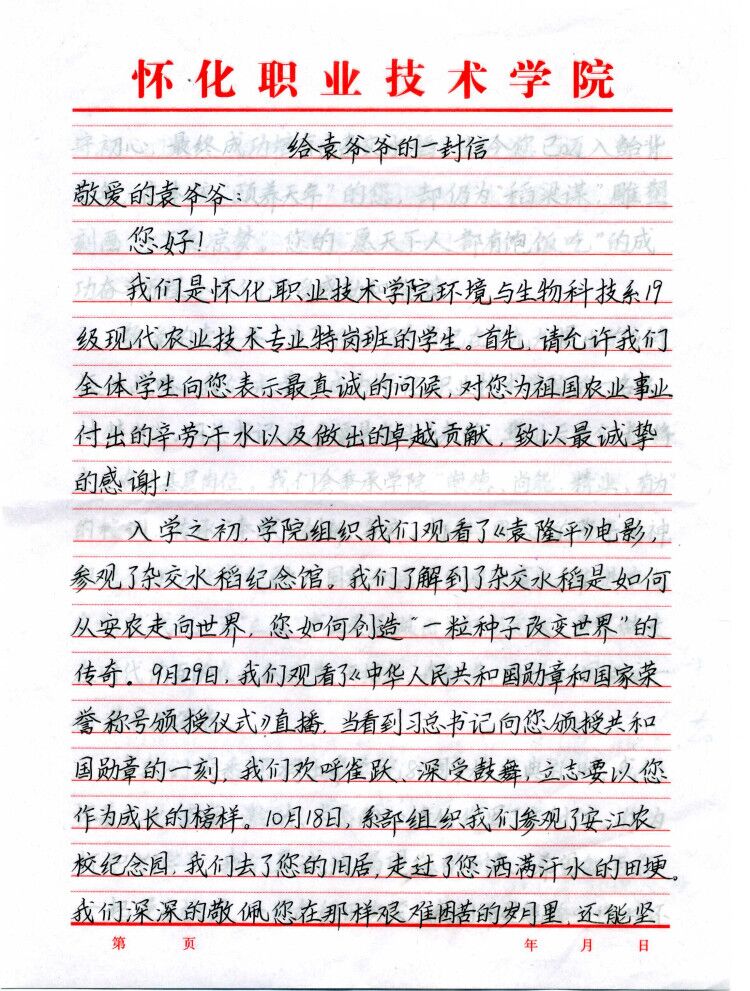 怀化职业技术学院
给袁爷爷的一封信
敬爱的袁爷爷：
您好！
我们是怀化职业技术学院环境与生物科技系19
级现代农业技术专业特岗班的学生。首先，请允许我们
全体学生向您表示最真诚的问候，对您为祖国农业事业
付出的辛劳汗水以及做出的卓越贡献，致以最诚挚
的感谢！
入学之初，学院组织我们观看了《袁隆平》电影，
参观了杂交水稻纪念馆。我们了解到了杂交水稻是如何
从安农走向世界，您如何创造“一粒种子改变世界”的
传奇。9月29日，我们观看了《中华人民共和国勋章和国家荣
誉称号颁授仪式》直播，当看到习总书记向您颁授共和
国勋章的一刻，我们欢呼雀跃、深受鼓舞，立志要以您
作为成长的榜样。10月18日，系部组织我们参观了安江农
校纪念园，我们去了您的旧居，走过了您洒满汗水的田埂。
我们深深的敬佩您在那样艰难困苦的岁月里，还能坚
第 页 年 月 日